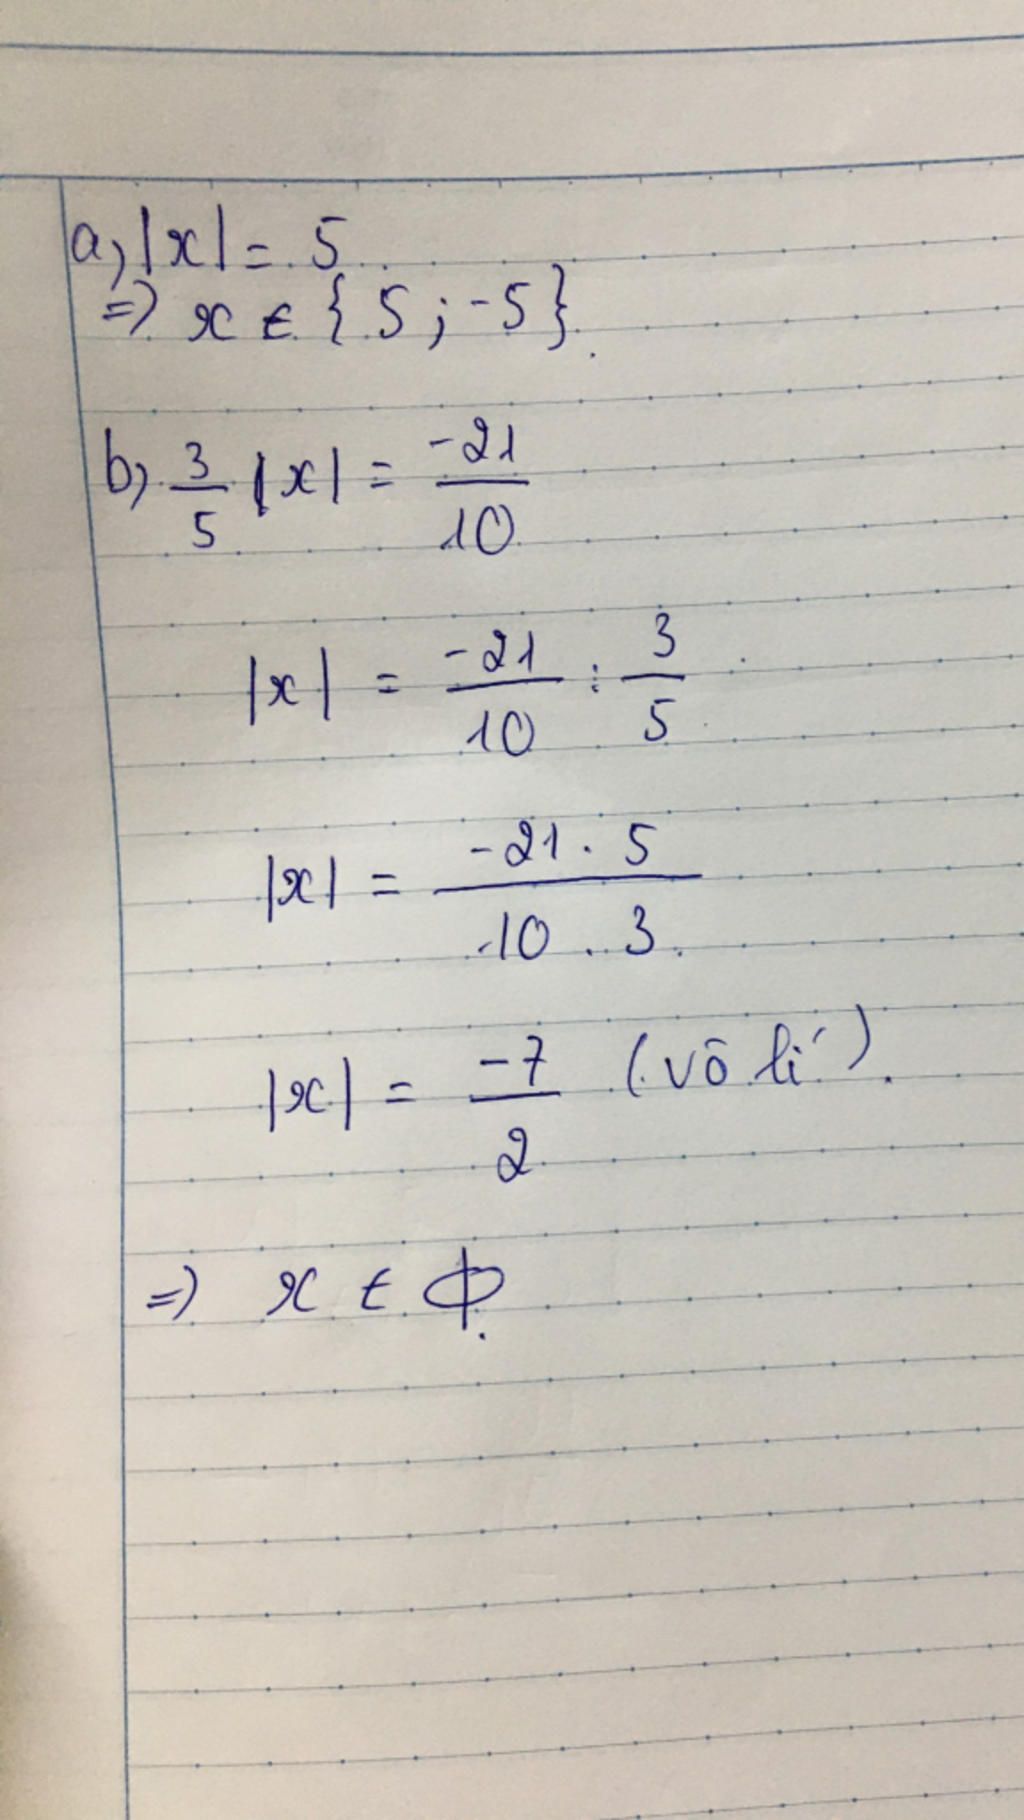 a, |x| = 5
=> x ∈ {5 ; -5}.
b, 3/5 |x| = -21/10
|x| = -21/10 : 3/5
|x| = -21 . 5 / 10 . 3
|x| = -7/2 (vô lí).
=> x ∈ Φ.